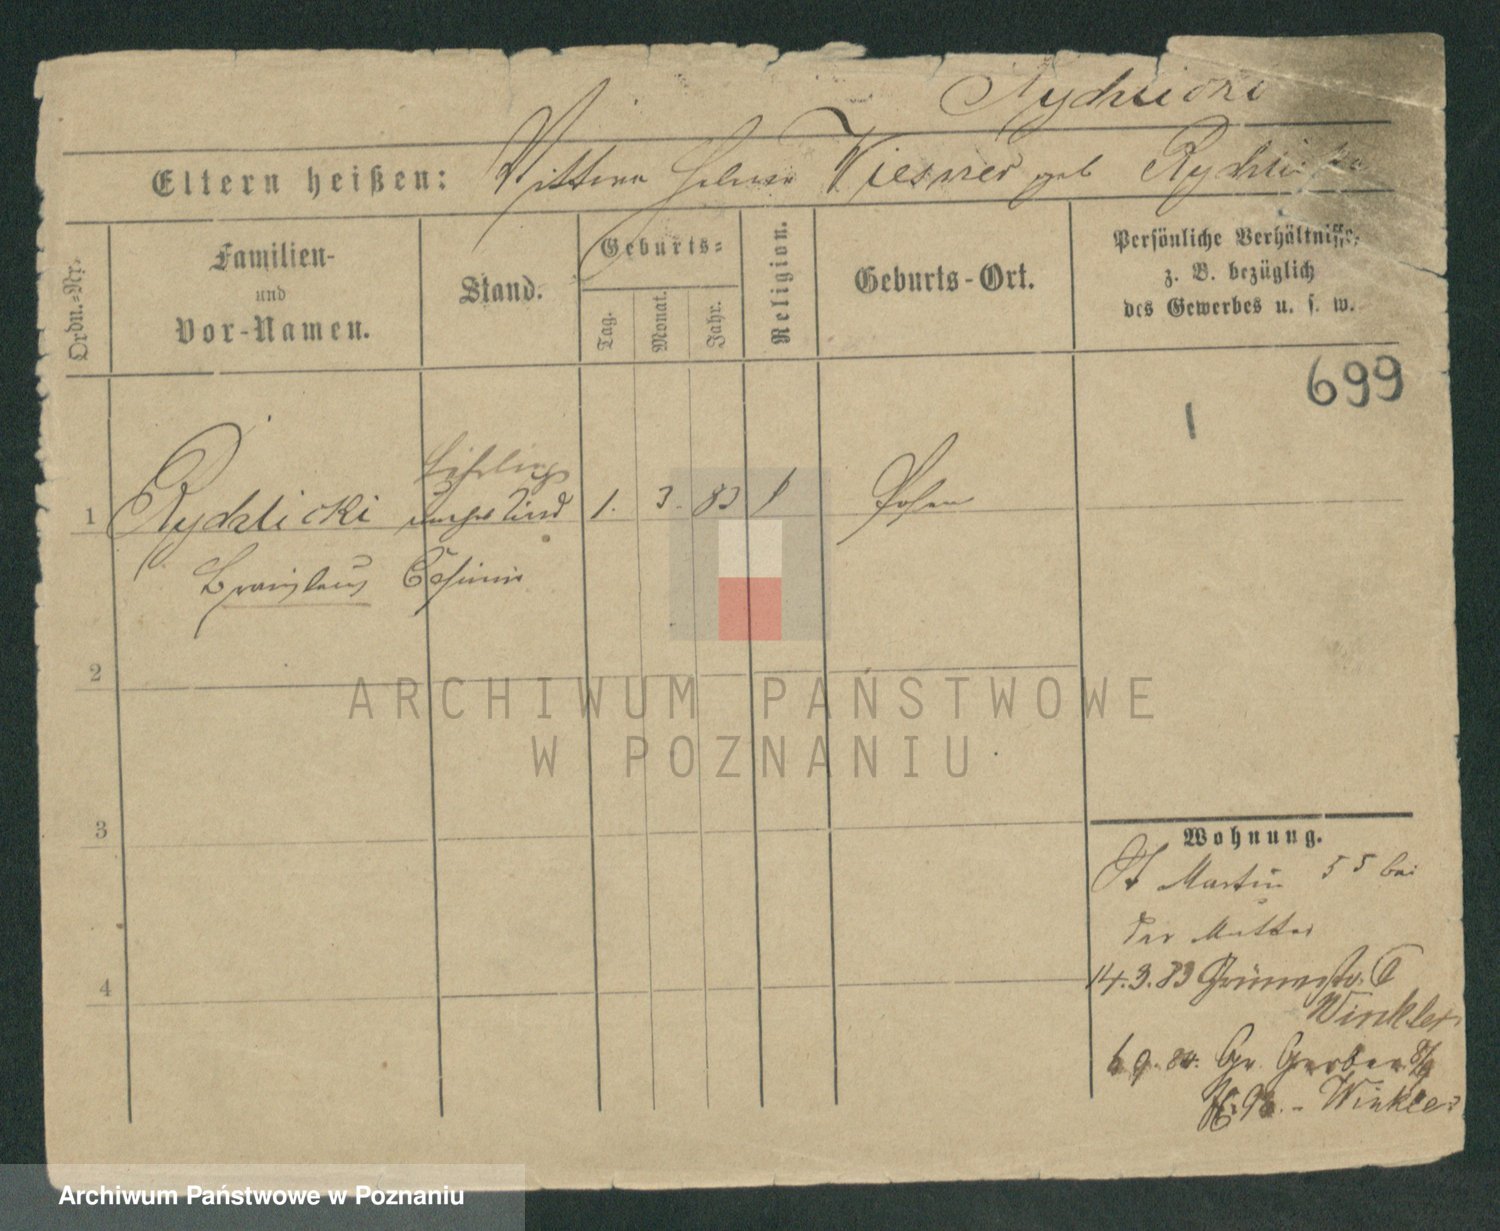 Rydzlicki
Eltern heißen: Wittwe Helene Wiesner geb Rydzlicka
Ordn.-Nr.
Familien-
und
Vor-Namen.
Stand.
Geburts-
Tag.
Monat.
Jahr.
Religion.
Geburts-Ort.
Persönliche Verhältnisse,
z. B. bezüglich
des Gewerbes u. s. w.
699
1
1 Rydzlicki 1. 3. 83 Posen
Bronislaus Casimir
2
ARCHIWUM PAŃSTWOWE
W POZNANIU
3
Wohnung.
St Martin 55 bei
der Mutter
4
14.3.83
Winkler
Gr. Gerber
Winkler
Archiwum Państwowe w Poznaniu